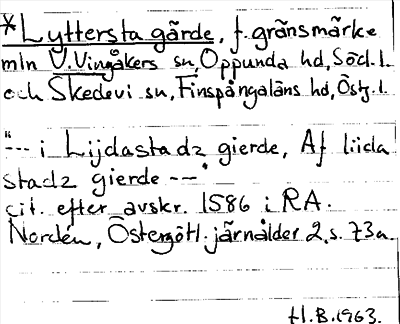 *Lyttersta gärde, f. gränsmärke
mln V. Vingåkers sn, Oppunda hd, Södl.l.
och Skedevi sn, Finspångaläns hd, Östg.l.
"--- i Lijdastadz gierde, Af liida
stadz gierde ---"
cit. efter avskr. 1586 i RA.
Nordén, Östergötl. järnålder 2, s. 73a.
H.B.1963.